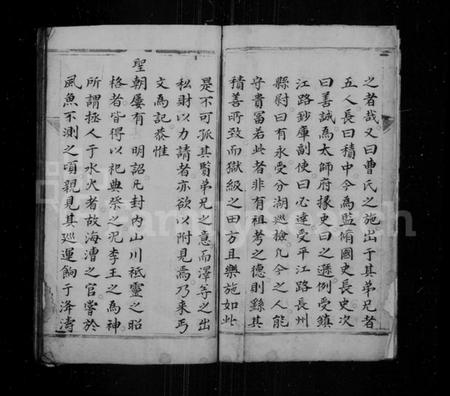 之者哉又曰曹氏之施出于其弟兄者
五人長曰積中今為監脩國史長史次
曰善誠為太師府掾史曰之遜例受鎮
江路䤵庫副使曰心達受平江路長州
縣尉曰有永受分湖巡檢凡今之人能
守貴富若此者非有祖考之德則繇其
積善所致而獄級之田方且樂施如此
是不可孤其賢弟兄之意而澤等之出
私財以力請者亦欲以附見焉乃来丐
文為記恭惟
聖朝屢有 明詔凡封内山川祗靈之昭
格者皆得以祀典榮之泥李王之為神
所謂拯人于水火者故海漕之官嘗於
風魚不測之頃親見其巡運餉于洚濤